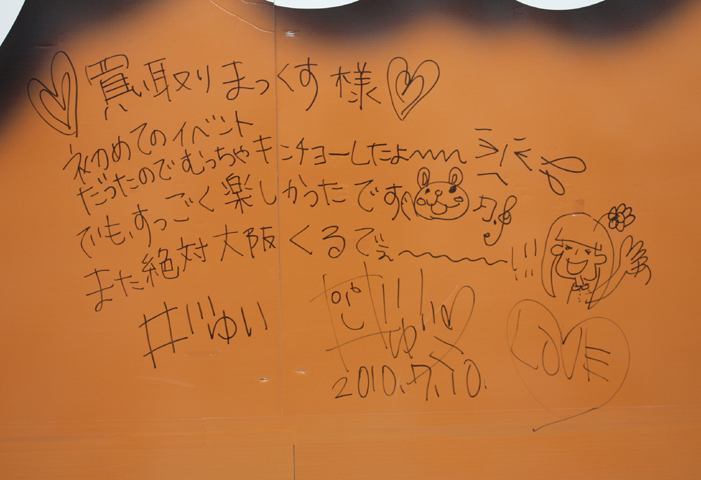 買い取りまっくす様
初めてのイベント
だったのでむっちゃキンチョーしたよ〜〜
でも、すっごく楽しかったです
また絶対大阪くるでぇ〜〜!!!
#じゅい
2010.7.10.
LOVE